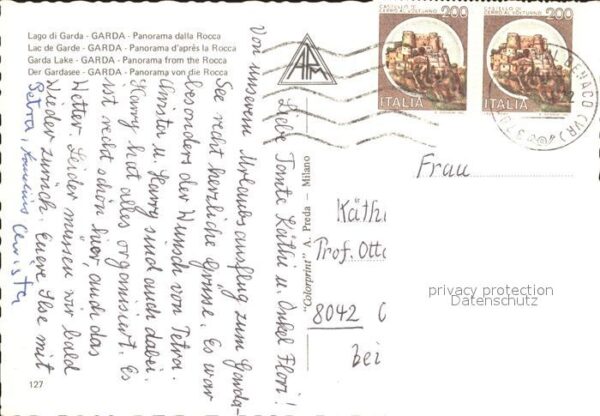 Lago di Garda - GARDA - Panorama dalla Rocca
Lac de Garde - GARDA - Panorama d'après la Rocca
Garda Lake - GARDA - Panorama from the Rocca
Der Gardasee - GARDA - Panorama von die Rocca
APM
CASTELLO DI
CERRO AL VOLTURNO
200
ITALIA
CASTELLO DI
CERRO AL VOLTURNO
200
ITALIA
BENACO (VR)
Liebe Tante Käthi u. Onkel Flori!
Von unserem Urlaubsausflug zum Garda-
See recht herzliche Grüsse. Es war
besonders der Wunsch von Petra.
Christa u. Harry sind auch dabei.
Harry hat alles organisiert. Es
ist recht schön hier, auch das
Wetter. Leider müssen wir bald
wieder zurück. Euere Ilse mit
Petra,
Christa
"Colorprint" A. Preda - Milano
Frau
Käthi
Prof. Otto
8042
bei
privacy protection
Datenschutz
127